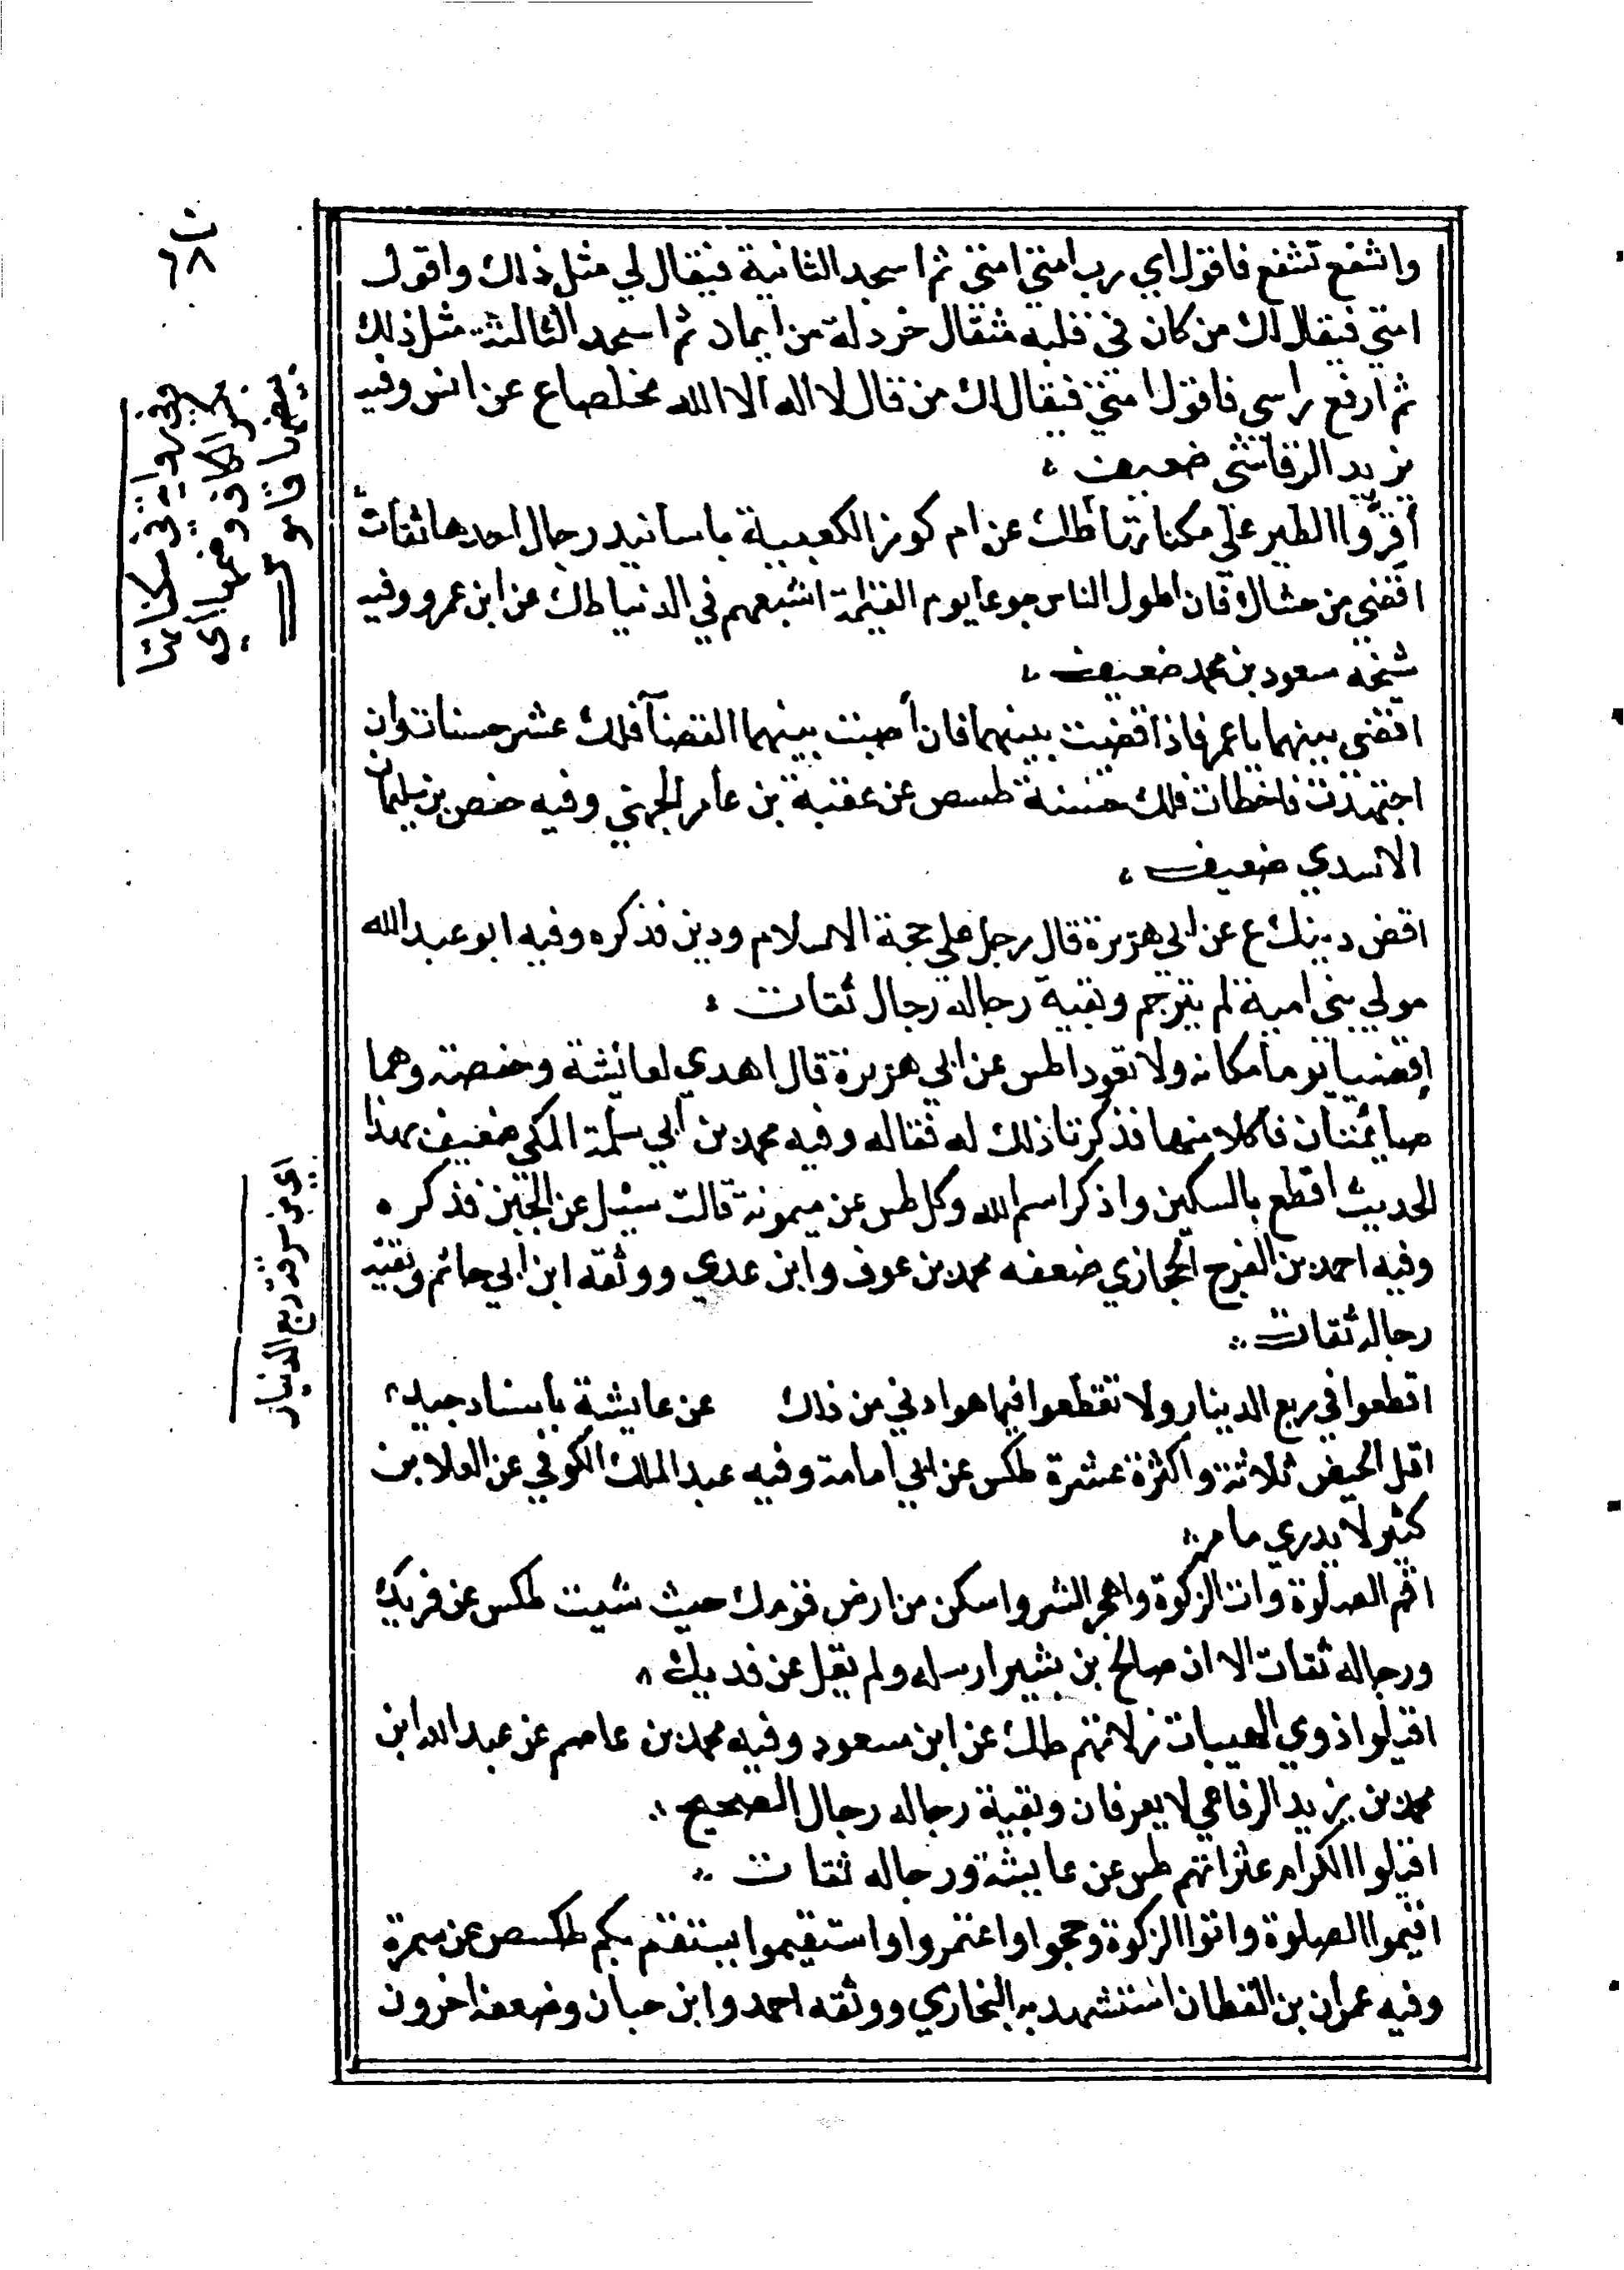 واشفع تشفع فاقول اي رب امتي امتي ثم اسجد الثانية فيقال لي مثل ذلك واقول
امتي فيقال لك من كان في قلبه مثقال خردلة من ايمان ثم اسجد الثالثة مثل ذلك
ثم ارفع راسي فاقول امتي فيقال لك من قال لا اله الا الله مخلصا ع عن انس وفيه
يزيد الرقاشي ضعيف
أقروا الطير على مكناتها طك عن ام كرز الكعبية باسانيد رجال احدها ثقات
اقضي من جشائك فان اطول الناس جوعا يوم القيمة اشبعهم في الدنيا طك عن ابن عمرو وفيه
شيخه مسعود بن محمد ضعيف
اقضي بينهما يا عمر فاذا قضيت بينهما فان أصبت بينهما القضآ فلك عشر حسنات وان
اجتهدت فاخطات فلك حسنة طسص عن عقبة بن عامر الجهني وفيه حفص بن سليمان
الاسدي ضعيف
اقض دينك ع عن ابي هريرة قال رجل علي حجة الاسلام ودين فذكره وفيه ابو عبد الله
مولي بني امية لم يترجم وبقية رجاله رجال ثقات
إقضيا يوما مكانه ولا تعودا طس عن ابي هريرة قال اهدي لعائشة وحفصة وهما
صائمتان فاكلا منها فذكرتا ذلك له فقاله وفيه محمد بن ابي سلمة المكي ضعيف بهذا
الحديث اقطع بالسكين واذكر اسم الله وكل طس عن ميمونة قالت سئيل عن الجبن فذكره
وفيه احمد بن الفرج الحجازي ضعفه محمد بن عوف وابن عدي ووثقه ابن ابي حاتم وبقية
رجاله ثقات
اقطعوا في ربع الدينار ولا تقطعوا فيما هو ادني من ذلك عن عايشة باسناد جيد
اقل الحيض ثلاثة واكثره عشرة طكس عن ابي امامة وفيه عبد الملك الكوفي عن العلا بن
كثير لا يدري ما هو
اقم الصلوة وات الزكوة واهجر الشر واسكن من ارض قومك حيث شيت طكس عن فديك
ورجاله ثقات الا ان صالح بن بشير ارسله ولم يقل عن فديك
اقيلوا ذوي الهيبات زلاتهم طك عن ابن مسعود وفيه محمد بن عاصم عن عبد الله ابن
محمد بن يزيد الرفاعي لا يعرفان وبقية رجاله رجال الصحيح
اقيلوا الكرام عثراتهم طس عن عايشة ورجاله ثقات
اقيموا الصلوة واتوا الزكوة وحجوا واعتمروا واستقيموا يستقم بكم طكسص عن سمرة
وفيه عمران بن القطان استشهد به البخاري ووثقه احمد وابن حبان وضعفه اخرون
٦٨
ربع الدينار